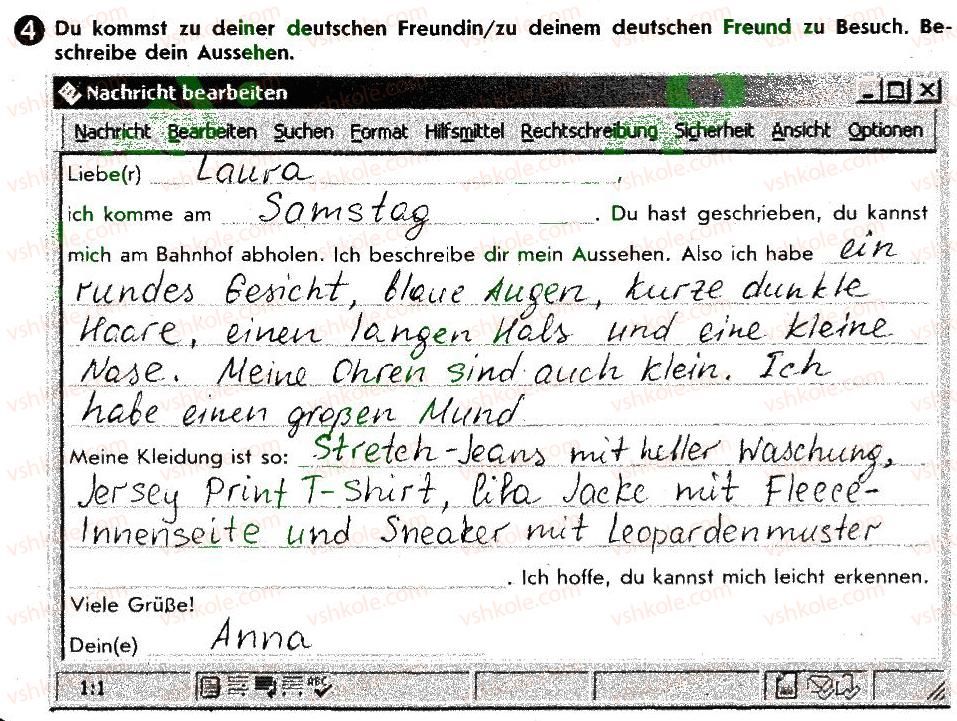 4 Du kommst zu deiner deutschen Freundin/zu deinem deutschen Freund zu Besuch. Be-
schreibe dein Aussehen.
Nachricht bearbeiten
Nachricht Bearbeiten Suchen Format Hilfsmittel Rechtschreibung Sicherheit Ansicht Optionen
Liebe(r) Laura,
ich komme am Samstag. Du hast geschrieben, du kannst
mich am Bahnhof abholen. Ich beschreibe dir mein Aussehen. Also ich habe ein
rundes Gesicht, blaue Augen, kurze dunkle
Haare, einen langen Hals und eine kleine
Nase. Meine Ohren sind auch klein. Ich
habe einen großen Mund
Meine Kleidung ist so: Stretch-Jeans mit heller Waschung,
Jersey Print T-Shirt, lila Jacke mit Fleece-
Innenseite und Sneaker mit Leopardenmuster
. Ich hoffe, du kannst mich leicht erkennen.
Viele Grüße!
Dein(e) Anna
1:1 ABC
vshkole.com